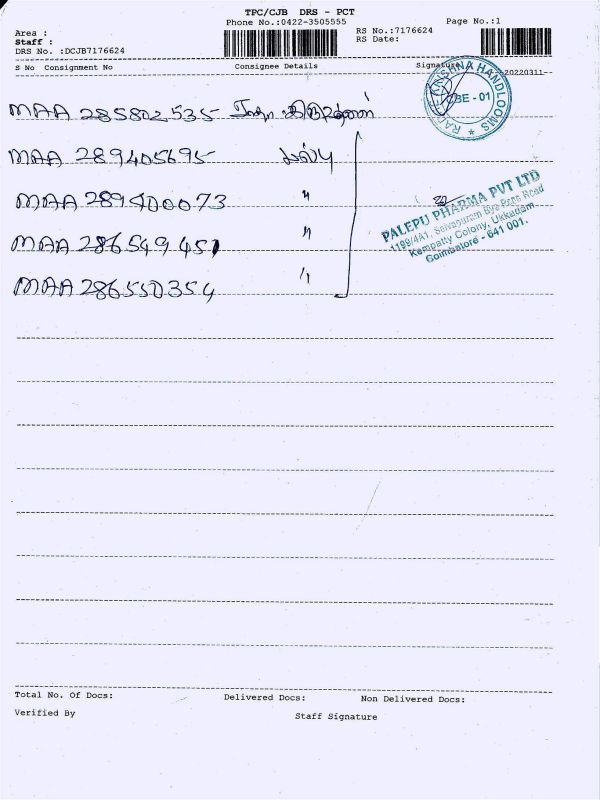 TPC/CJB DRS - PCT
Phone No.:0422-3505555
Page No.:1
Area :
Staff :
DRS No. :DCJB7176624
RS No.:7176624
RS Date:
S No Consignment No Consignee Details Signature
20220311
MAA 285802535 ராதா கிருஷ்ணன்
KRISHNA HANDLOOMS
CBE - 01
MAA 289405695 பல்பு
MAA 289400073 "
PALEPU PHARMA PVT LTD
1199/4A1, Selvapuram Bye Pass Road
Kempatty Colony, Ukkadam
Coimbatore - 641 001.
MAA 286549451 "
MAA 286550354 "
Total No. Of Docs: Delivered Docs: Non Delivered Docs:
Verified By Staff Signature